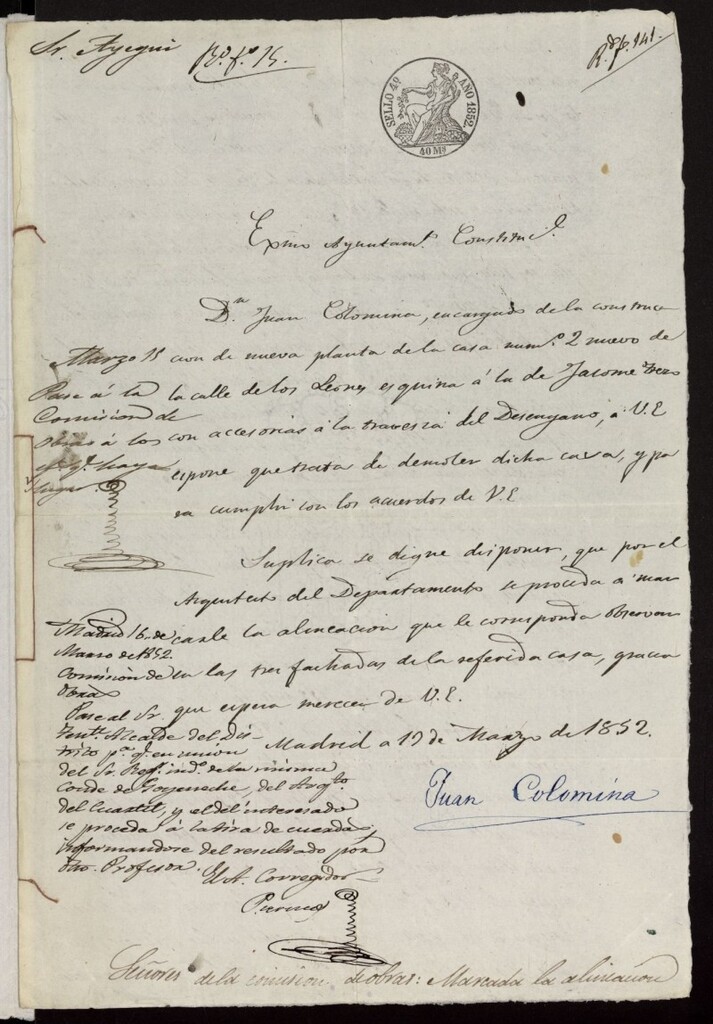 Sr. Ayegui
Rº. fº. 15.
Rº. fº. 141.
SELLO 4º AÑO 1852
40 Mˢ
Exmo Ayuntamᵗ. Constituc.ˡ
Dⁿ. Juan Colomina, encargado de la construc
cion de nueva planta de la casa numº. 2 nuevo de
la calle de los Leones esquina á la de Jacome trezo
con accesorias á la travesia del Desengaño, á V.E
espone que trata de demoler dicha casa, y pa
ra cumplir con los acuerdos de V.E
Suplica se digne disponer, que por el
Arquitecto del Departamento se proceda a mar
carle la alineacion que le corresponda observar
en las tres fachadas de la referida casa, gracia
que espera merecer de V.E.
Madrid a 13 de Marzo de 1852.
Juan Colomina
Marzo 15
Pase á la
Comision de
obras á los
efˢ. qᵉ. haya
lugar.
Madrid 16 de
Marzo de 1852.
Comision de
Obras
Pase al Sr.
Tenᵗᵉ. Alcalde del Dis-
trito pᵃ. qᵉ. en union
del Sr. Regʳ. indº. de la misma
Conde de Goyeneche, del Arqᵗº.
del Cuartel, y el del interesado
se proceda á la tira de cuerdas,
informandose del resultado por
dho. Profesor.
El A. Corregidor
Señores de la comision de obras: Marcada la alineacion